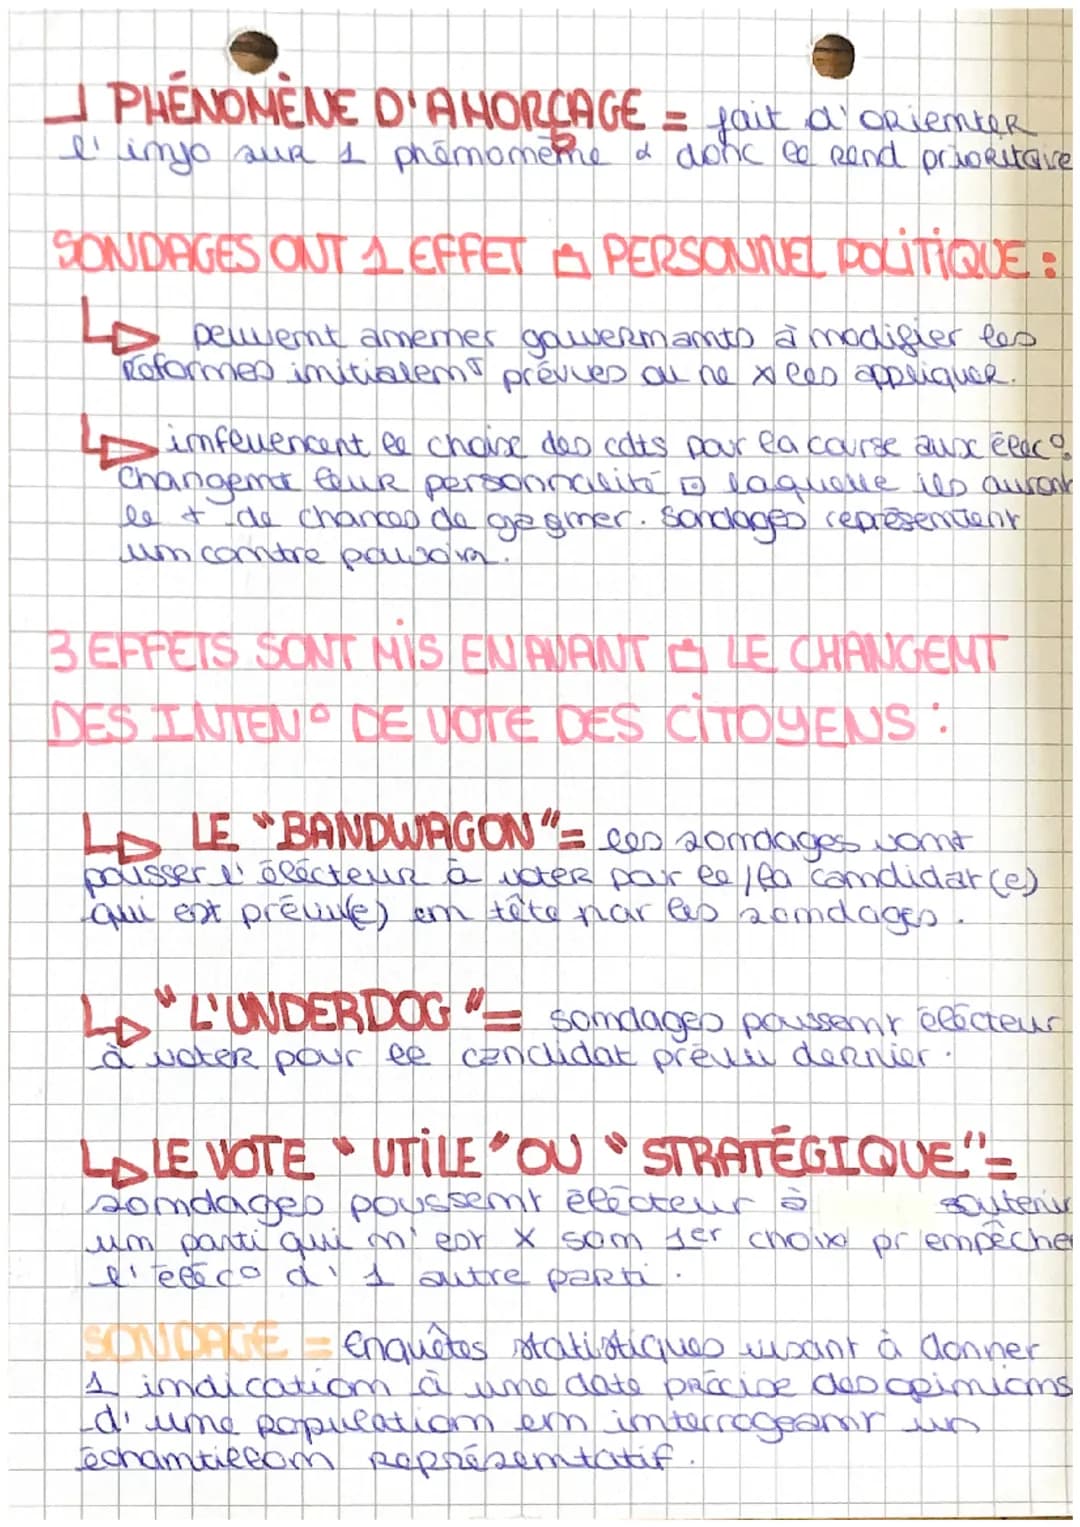 PHÉNOMÈNE D'AMORÇAGE = fait d'orienter
l'info sur 1 phénomème & donc le rend prioritaire
SONDAGES ONT 1 EFFET PERSONNEL POLITIQUE :
peuvent amener gouvernants à modifier les
réformes initialemt prévues ou ne x les appliquer.
influencent le choix des cdts pour la course aux élec°.
Changemt leur personnalité laquelle ils auront
le + de chances de gagner. Sondages représentent
un contre pouvoir.
3 EFFETS SONT MIS EN AVANT LE CHANGEMT
DES INTEN° DE VOTE DES CITOYENS :
LE "BANDWAGON" = les sondages vont
pousser l'élécteur à voter par le/la candidat(e)
qui est prévu(e) en tête par les sondages.
"L'UNDERDOG" = sondages poussent élécteur
à voter pour le candidat prévu dernier.
LE VOTE "UTILE" OU "STRATÉGIQUE" =
sondages poussent élécteur à soutenir
un parti qui n'est x son 1er choix pr empêcher
l'éléc° d'1 autre parti.
SONDAGE = Enquêtes statistiques visant à donner
1 indication à une date précise des opinions
d'une population en interrogeant un
échantillon représentatif.